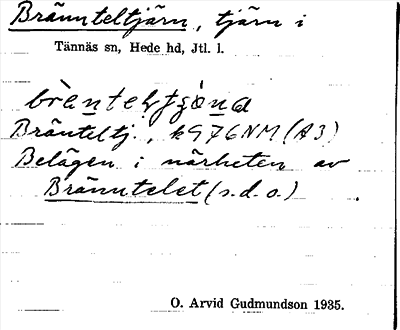 Bränneltjärn, tjärn i
Tännäs sn, Hede hd, Jtl. l.
Bränteltj., k976NM(A3)
Belägen i närheten av
Bränntelet (s.d.o.).
O. Arvid Gudmundson 1935.